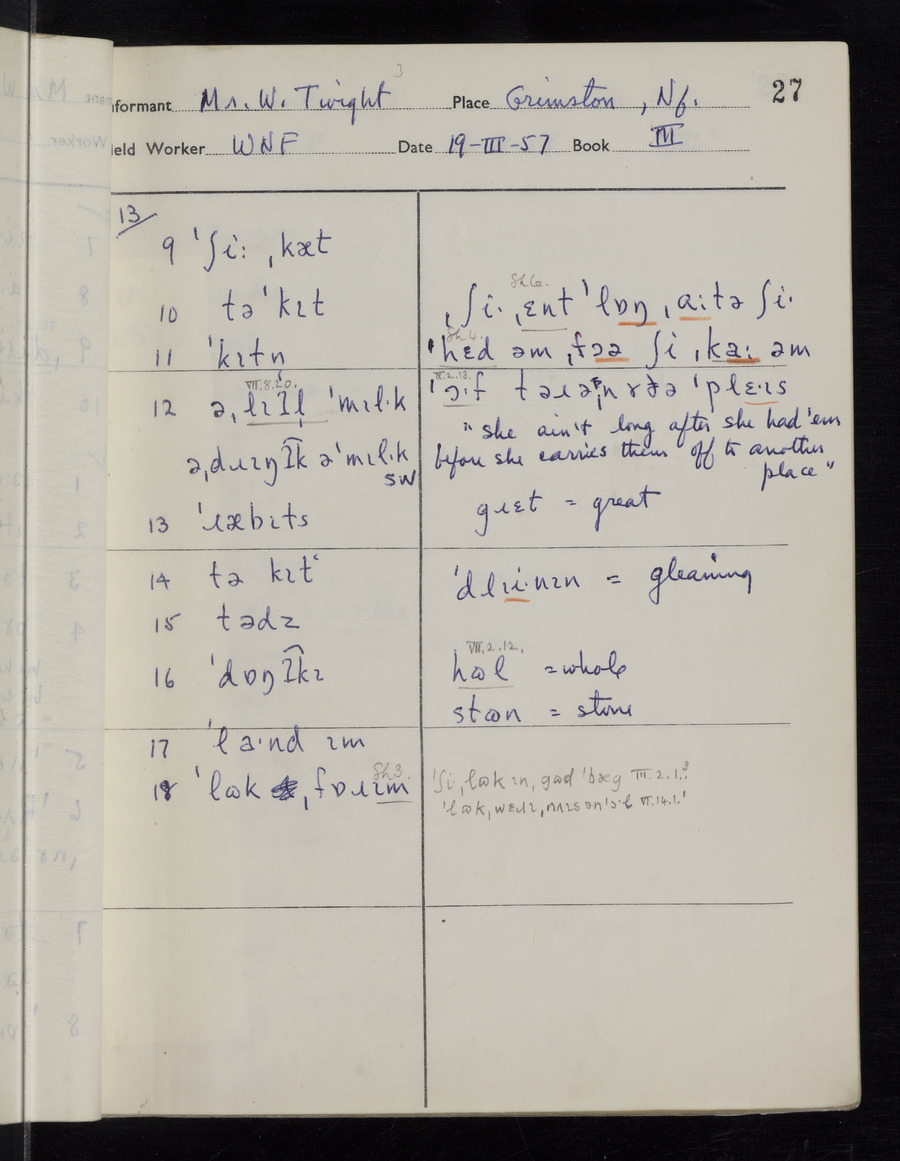 3
Informant Mr. W. Twight Place Grimston, Nf. 27
Field Worker WNF Date 19-III-57 Book III
13/
9 ˈʃiː ˌkæt
10 təˈkɪt
11 ˈkɪtn
VII.8.20.
12 ə ˌlɪɪl ˈmɪlˑk
ə ˌdɹɪŋɪk əˈmɪlˑk
SW
13 ˈɹæbɪts
14 tə kɪtʿ
15 tədz
16 ˈdɒŋɪkɪ
17 ˈlaˑnd ɪm
Sh3.
18 ˈlɷk ˌfɒɹɪm
Sh6.
ˌʃiˑ ˌɛnt ˈlɒŋ ˌaːtə ʃiˑ
Sh4.
ˈhɛd əm ˌfɔə ʃi ˌkaː əm
ˈɔˑf
"she ain't long after she had 'em
before she carries them off to another
place"
gɹɛt = great
ˈdlɪiˑnɪn = gleaning
VII.2.12.
hɷl = whole
stɷn = stone
ˈʃi ˌlɷk ɪn gɷd ˈbæg III.2.1.
VI.14.1.